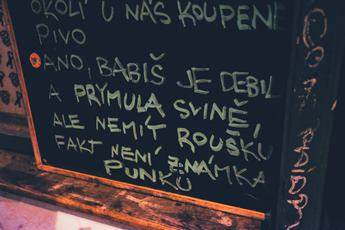 OKOLÍ U NÁS KOUPENÉ
PIVO
ANO, BABIŠ JE DEBIL
A PRYMULA SVINĚ,
ALE NEMÍT ROUŠKU
FAKT NENÍ ZNÁMKA
PUNKU